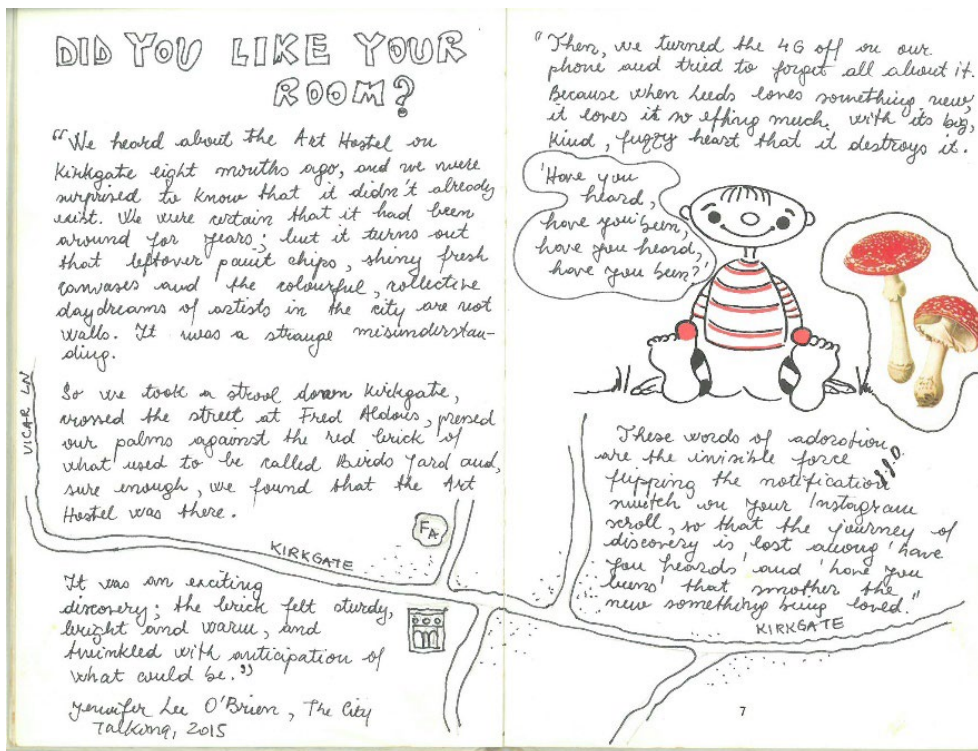 DID YOU LIKE YOUR
ROOM?
"We heard about the Art Hostel on
Kirkgate eight months ago, and we were
surprised to know that it didn't already
exist. We were certain that it had been
around for years; but it turns out
that leftover paint chips, shiny fresh
canvases and the colourful, collective
daydreams of artists in the city are not
walls. It was a strange misunderstan-
ding.
So we took a strool down Kirkgate,
crossed the street at Fred Aldous, pressed
our palms against the red brick of
what used to be called Birds Yard and,
sure enough, we found that the Art
Hostel was there.
VICAR LN
FA
KIRKGATE
It was an exciting
discovery; the brick felt sturdy,
bright and warm, and
twinkled with anticipation of
what could be."
Jennifer Lee O'Brien, The City
Talking, 2015
"Then, we turned the 4G off on our
phone and tried to forget all about it.
Because when Leeds loves something new,
it loves it so effing much, with its big,
kind, fuzzy heart that it destroys it.
'Have you
heard,
have you been,
have you heard,
have you been?'
These words of adoration
are the invisible force
flipping the notification
switch on your Instagram
scroll, so that the journey of
discovery is lost among 'have
you heards' and 'have you
beens' that smother the
new something being loved."
KIRKGATE
7